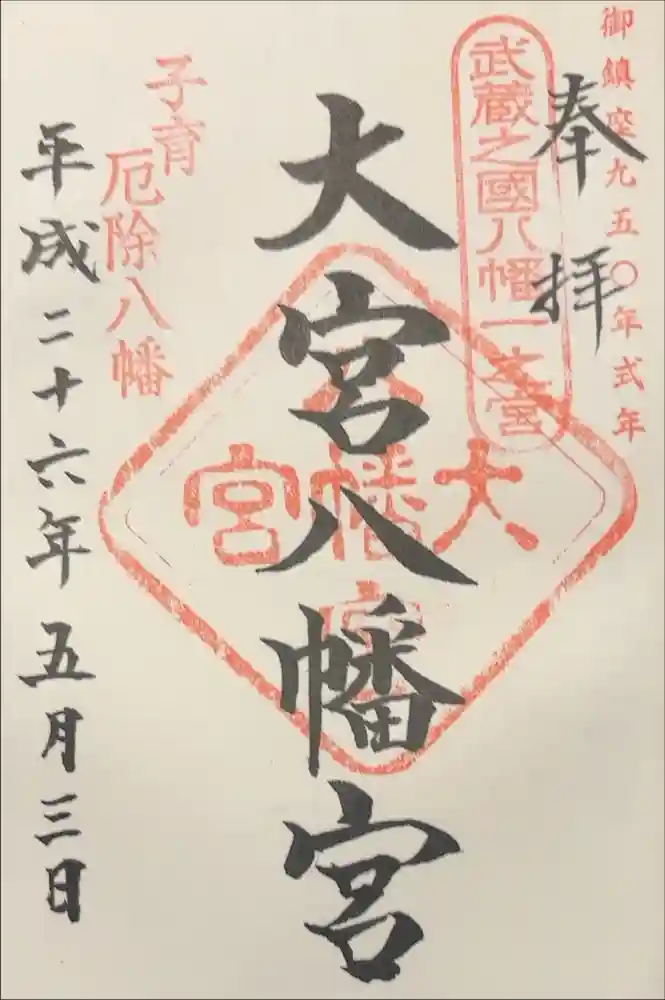 御鎮座九五〇年式年
奉拝
武蔵之國八幡一之宮
大宮八幡宮
大宮
八幡宮
子育
厄除八幡
平成二十六年五月三日